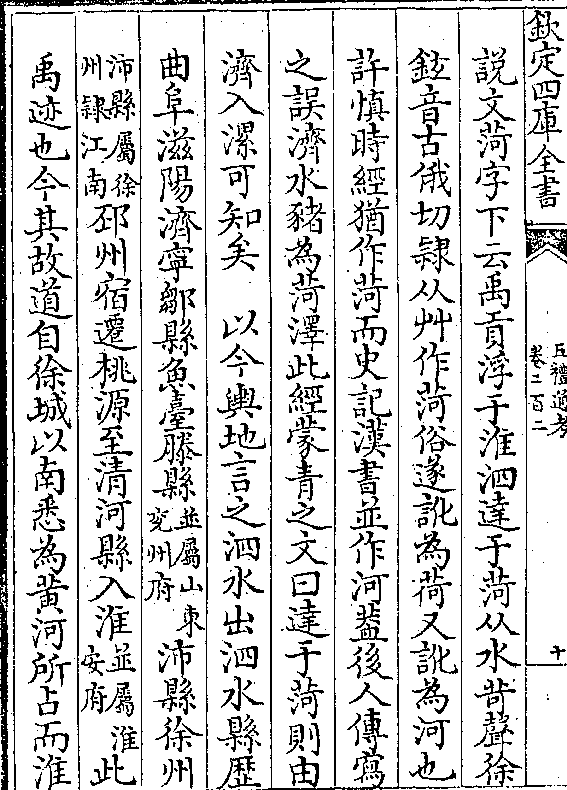 欽定四庫全書
五禮通考
卷二百二
十
說文菏字下云禹貢浮于淮泗達于菏从水苛聲徐
鉉音古俄切隸从艸作菏俗遂訛為荷又訛為河也
許慎時經猶作菏而史記漢書並作河葢後人傳寫
之誤濟水豬為菏澤此經蒙青之文曰達于菏則由
濟入漯可知矣　以今輿地言之泗水出泗水縣歷
曲阜滋陽濟寧鄒縣魚臺滕縣並屬山東兖州府沛縣徐州
沛縣屬徐州隸江南邳州宿遷桃源至清河縣入淮並屬淮安府此
禹迹也今其故道自徐城以南悉為黄河所占而淮